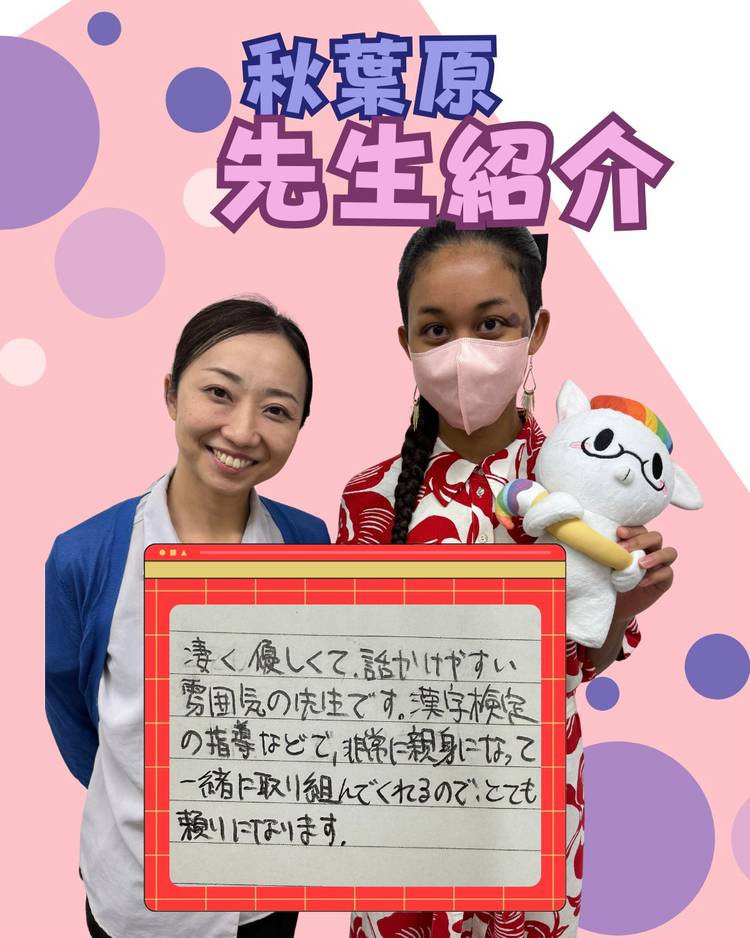 秋葉原
先生紹介
凄く優しくて、話かけやすい
雰囲気の先生です。漢字検定
の指導などで、非常に親身になって
一緒に取り組んでくれるので、とても
頼りになります。